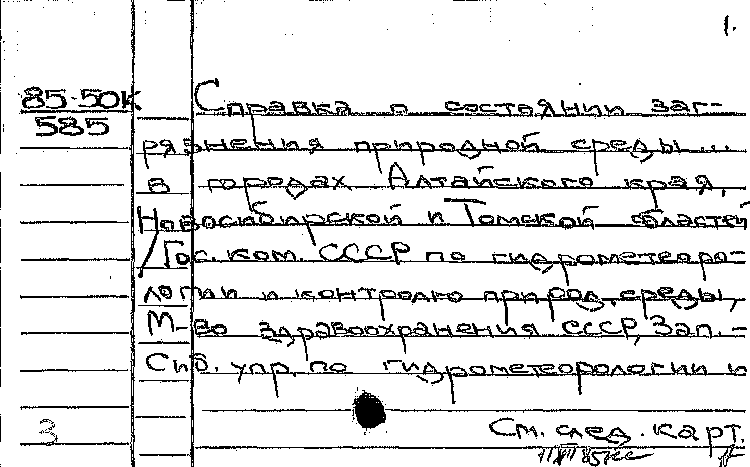 1.
85-50К
585
Справка о состоянии заг-
рязнения природной среды...
в городах Алтайского края,
Новосибирской и Томской областей
/Гос. ком. СССР по гидрометеоро-
логии и контролю природ. среды,
М-во здравоохранения СССР, Зап.-
Сиб. упр. по гидрометеорологии и
3
См. след. карт.